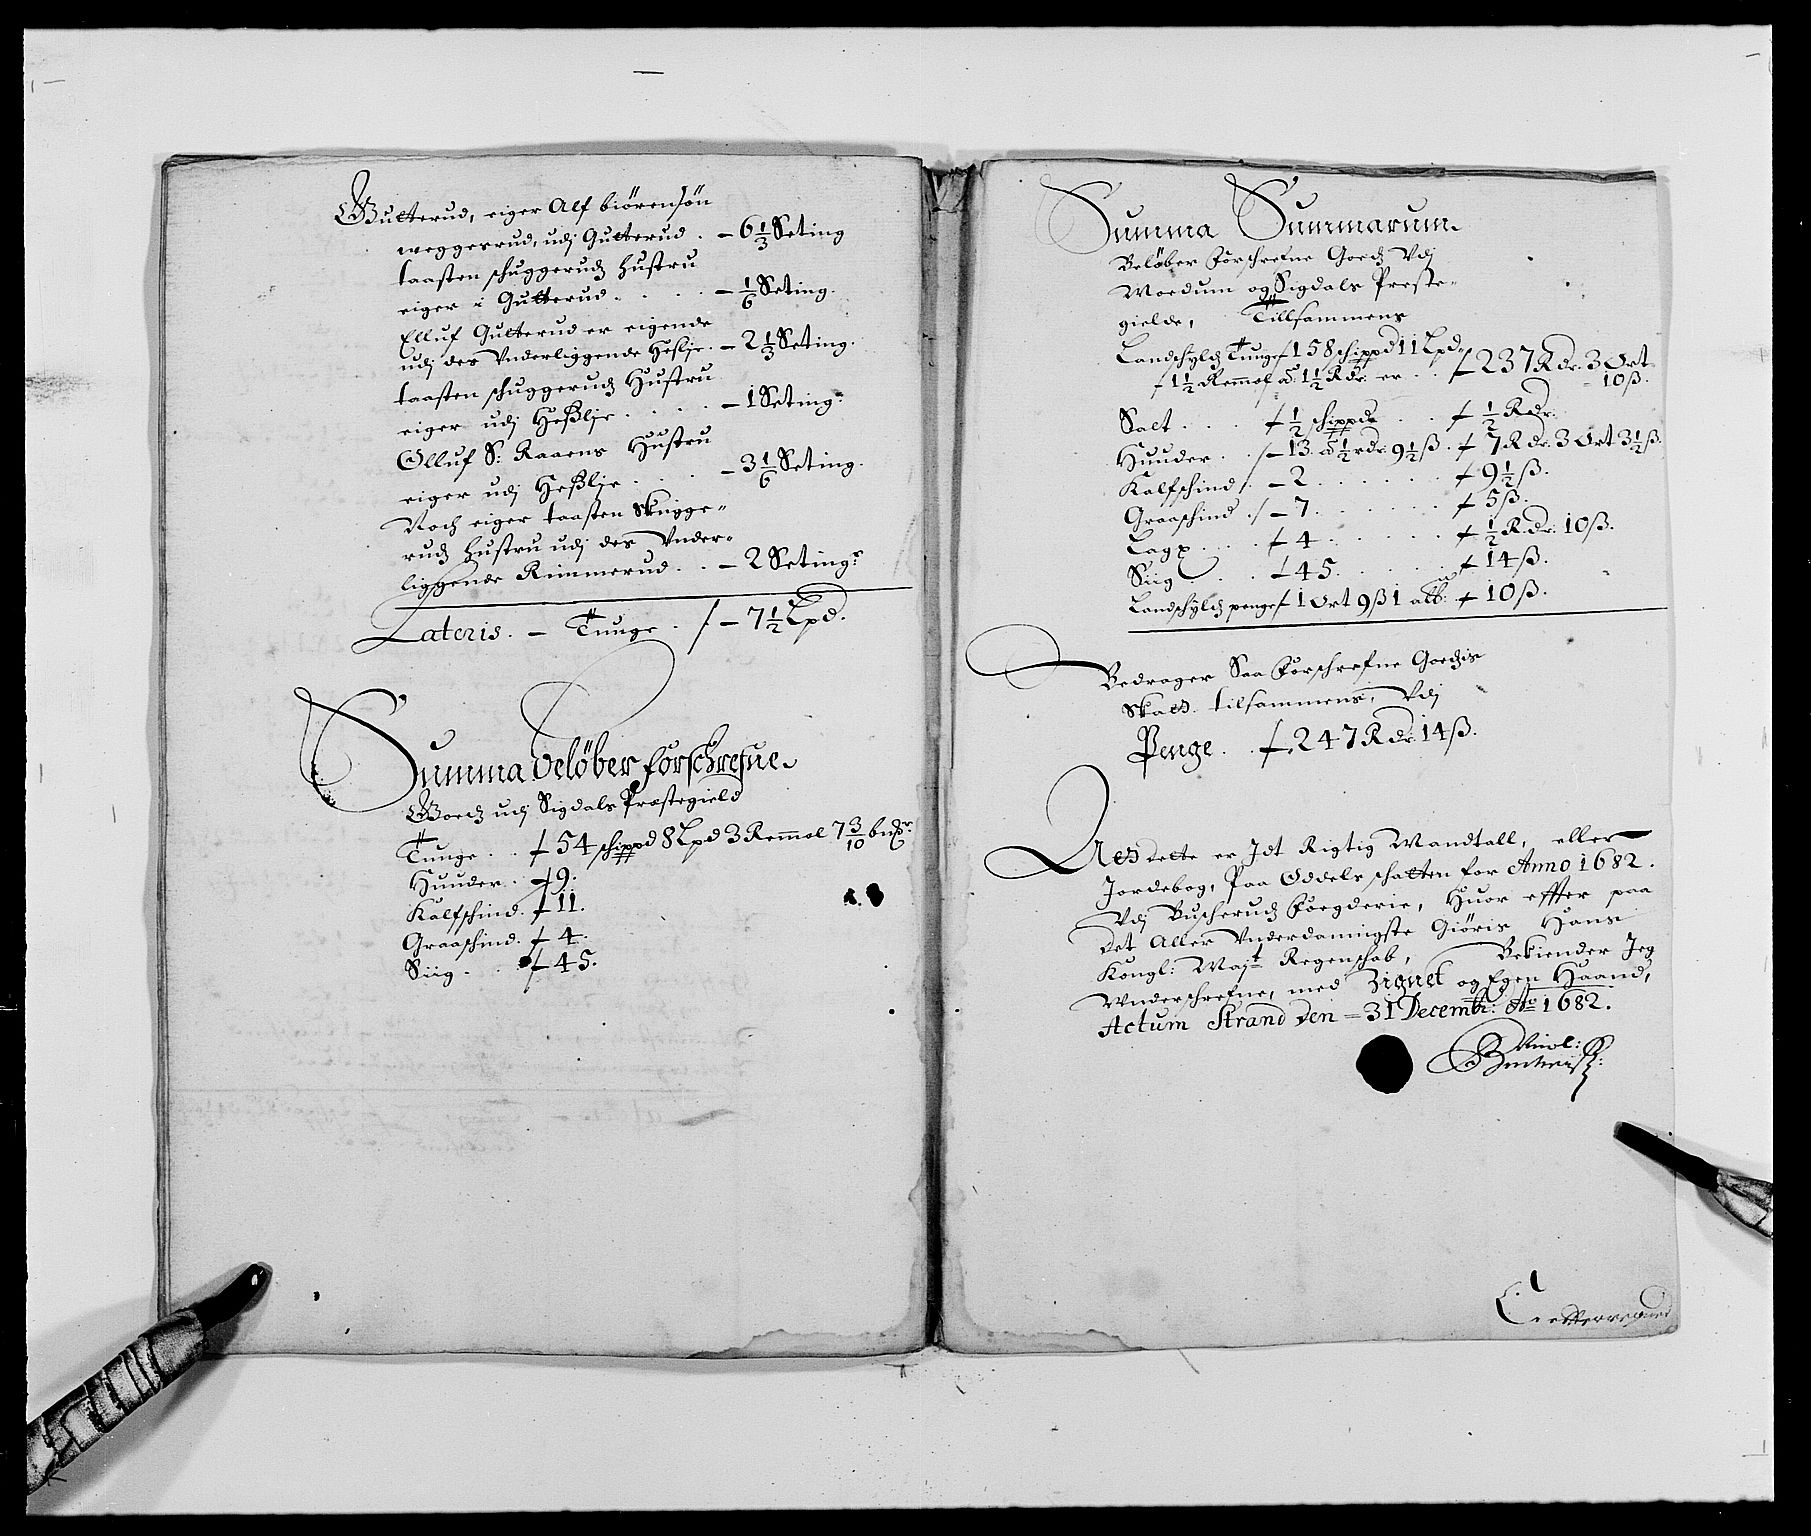 Gutterud, eiger Alf biörensön
weggerud, udj Gutterud . – 6 1/3 Seting
taasten schuggerudz Hustru
eiger i Gutterud . . . . – 1/6 Seting.
Elluf Gutterud er eigende
udj des Vnderliggende Heslie. – 2 1/3 Seting.
taasten schuggerudz Hustru
eiger udj Heßlie . . . . – 1 Seting.
Olluf S: Raaens Hustru
eiger udj Heßlie . . . . – 3 1/6 Seting.
Noch eiger taasten Skugge-
rudz Hustru udj des Vnder-
liggende Rimmerud . . – 2 Seting:
Lateris. – Tunge . /– 7 1/2 Lpd.
Summa Belöber forschrefne
Goedz udj Sigdals Præstegield
Tunge . . 54 schippd 8 Lpd 3 Remol 7 3/10 bndr:
Huuder . 9.
Kalfschind . 11.
Graaschind . 4.
Siig . . 45.
Summa Summarum
Belöber forschrefne Goedz Vdj
Moedum og Sigdals Preste-
gielde, Tillsammens
Landschyldz Tunge 158 schippd 11 Lpd
1 1/2 Remol a 1 1/2 Rdr. er . . 237 Rdr. 3 Ort
10 ß.
Salt . . . 1/2 schippd . . 1/2 Rdr.
Huuder . . /– 13 a 1/2 rdr. 9 1/2 ß . 7 Rdr. 3 Ort 3 1/2 ß.
Kalfschind /. – 2 . . . . . . 9 1/2 ß.
Graaschind ./ – 7 . . . . . . 5 ß.
Lax . . . 4 . . . . . . 1/2 Rdr. 10 ß.
Siig . . . 45 . . . . . 14 ß.
Landschyldz penge 1 Ort 9 ß 1 alb: 10 ß.
Bedrager Saa forschrefne Goedzis
Skatt tilsammens, Vdj
Penge . . 247 Rdr 14 ß.
At dette er Jdt Rigtig Mandtall, eller
Jordebog, Paa Oddels schatten for Anno 1682.
Vdj Buscherudz foegderie, Huor effter paa
det Aller Vnderdannigste Giöris Hans
Kongl: Maijt Regenschab, Bekiender Jeg
Vnderschrefne, med Zignet og Egen Haand,
Actum Strand den – 31 Decembr: Ao 1682.